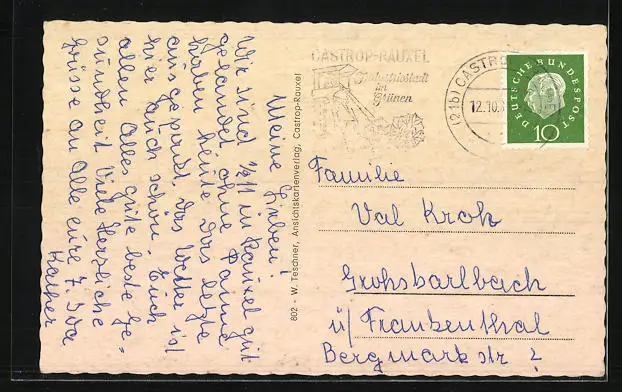 Meine Lieben!
Wir sind ½11 in Rauxel gut
gelandet ohne Panne
haben heute das letzte
ausgepackt. das Wetter ist
hier auch schön. Euch
allen alles gute beste Ge=
sundheit Viele Herzliche
Grüsse an Alle eure
Käthe
802 - W. Teschner, Ansichtskartenverlag, Castrop-Rauxel
CASTROP-RAUXEL
Industriestadt
im
Grünen
(21b) CASTROP
12.10.
DEUTSCHE BUNDESPOST
10
Familie
Val Kroh
Grohsbarlbach
ü/Frankenthal
Bergmarkstr 2